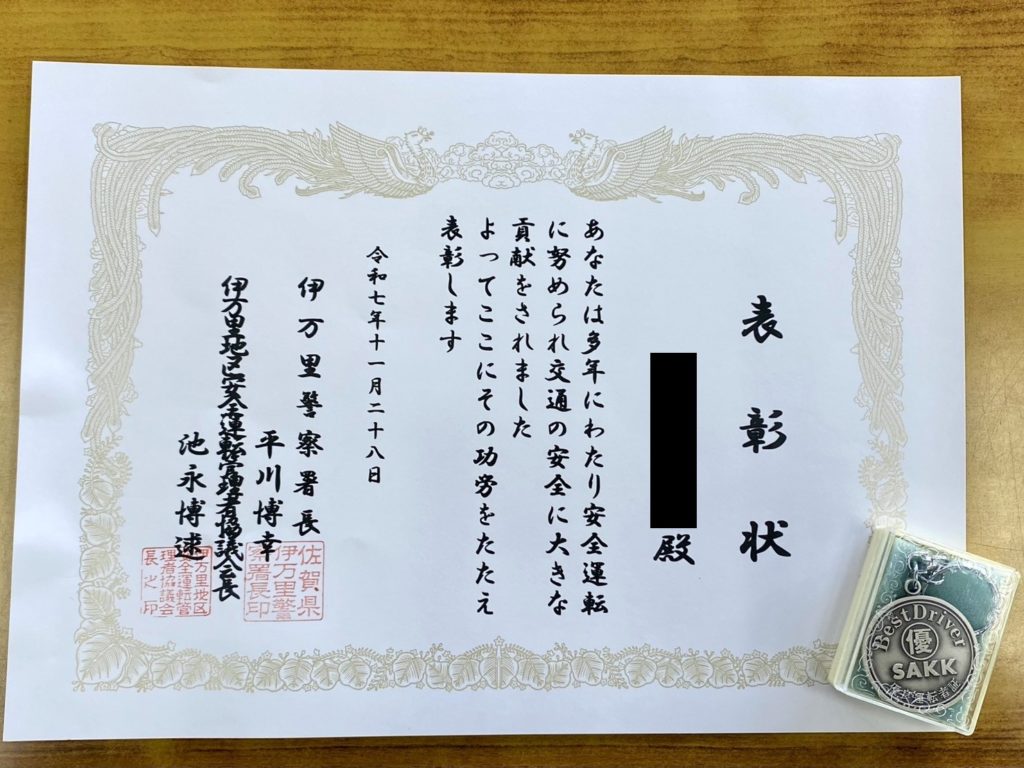 表彰状
殿
あなたは多年にわたり安全運転
に努められ交通の安全に大きな
貢献をされました
よってここにその功労をたたえ
表彰します
令和七年十一月二十八日
伊万里警察署長
平川博幸
佐賀県
伊万里警
察署長印
伊万里地区安全運転管理者協議会長
池永博逑
伊万里地区
安全運転管
理者協議会
長之印
Best Driver
優
SAKK
優良運転者証